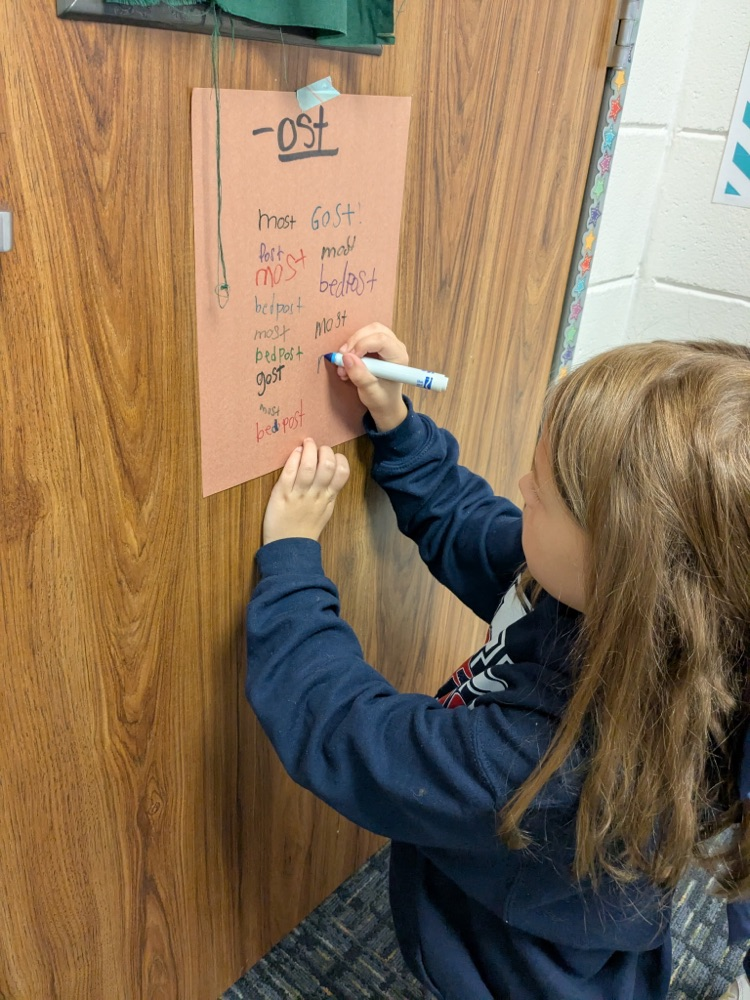 -ost
most Gost!
Post most
most bedpost
bedpost
most most
bedpost
gost
most
bedpost